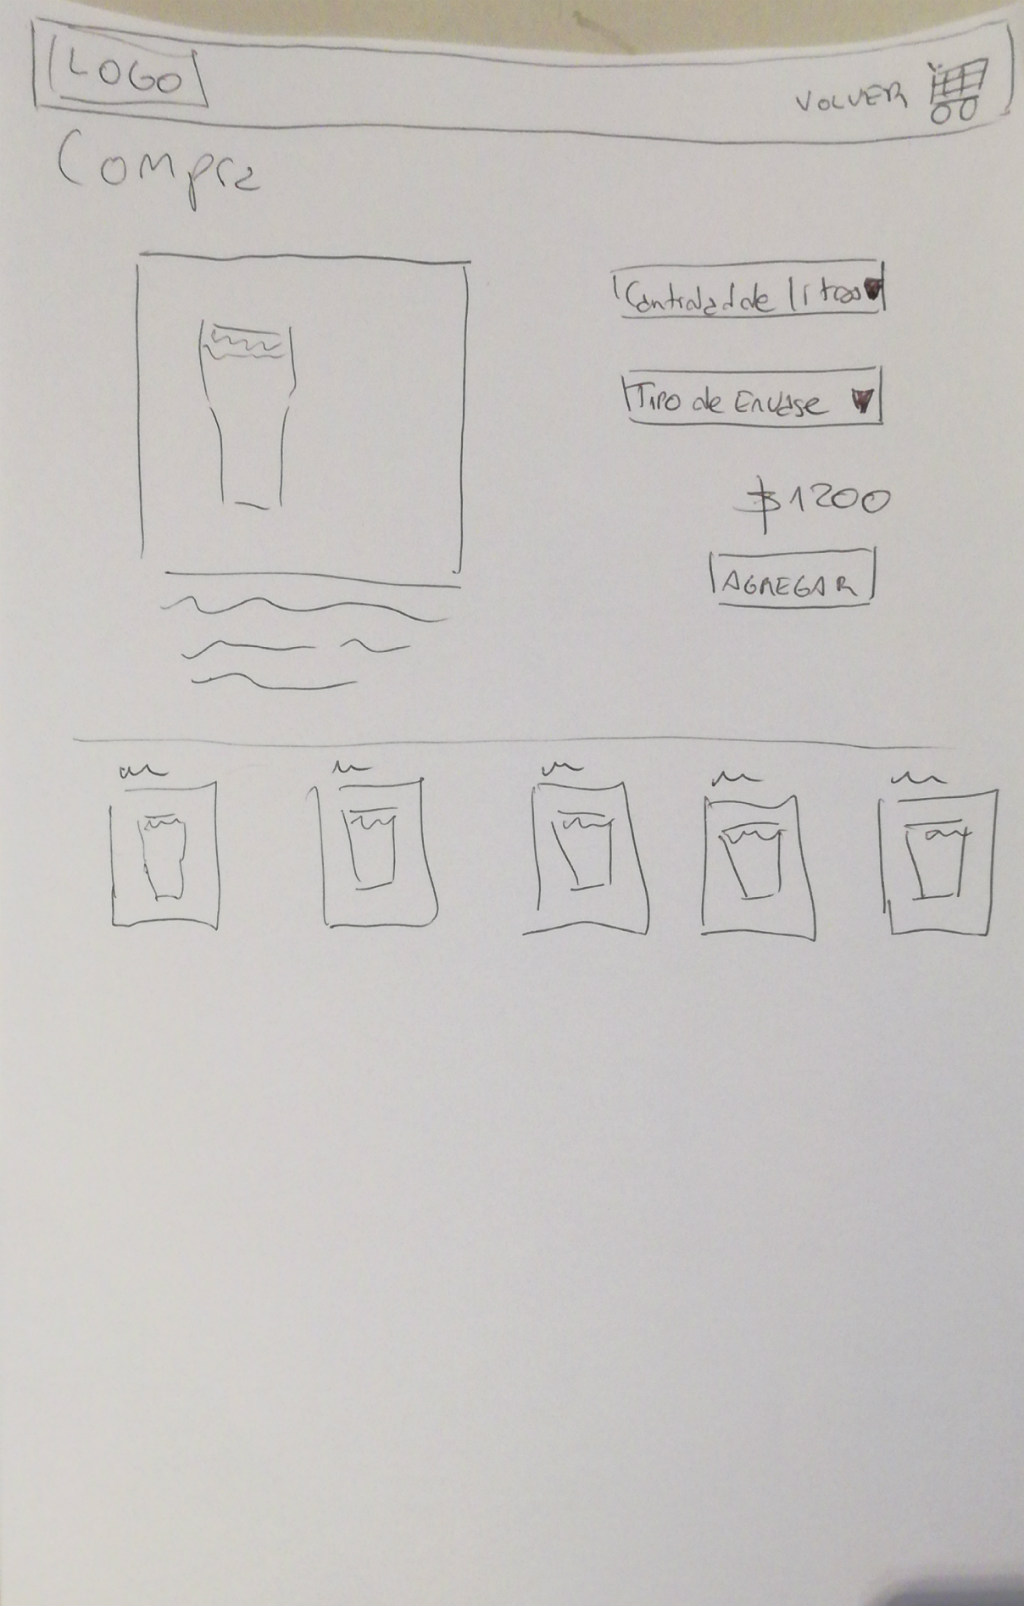 LOGO
VOLVER
Compra
Cantidad de litros
Tipo de Envase
$1200
AGREGAR